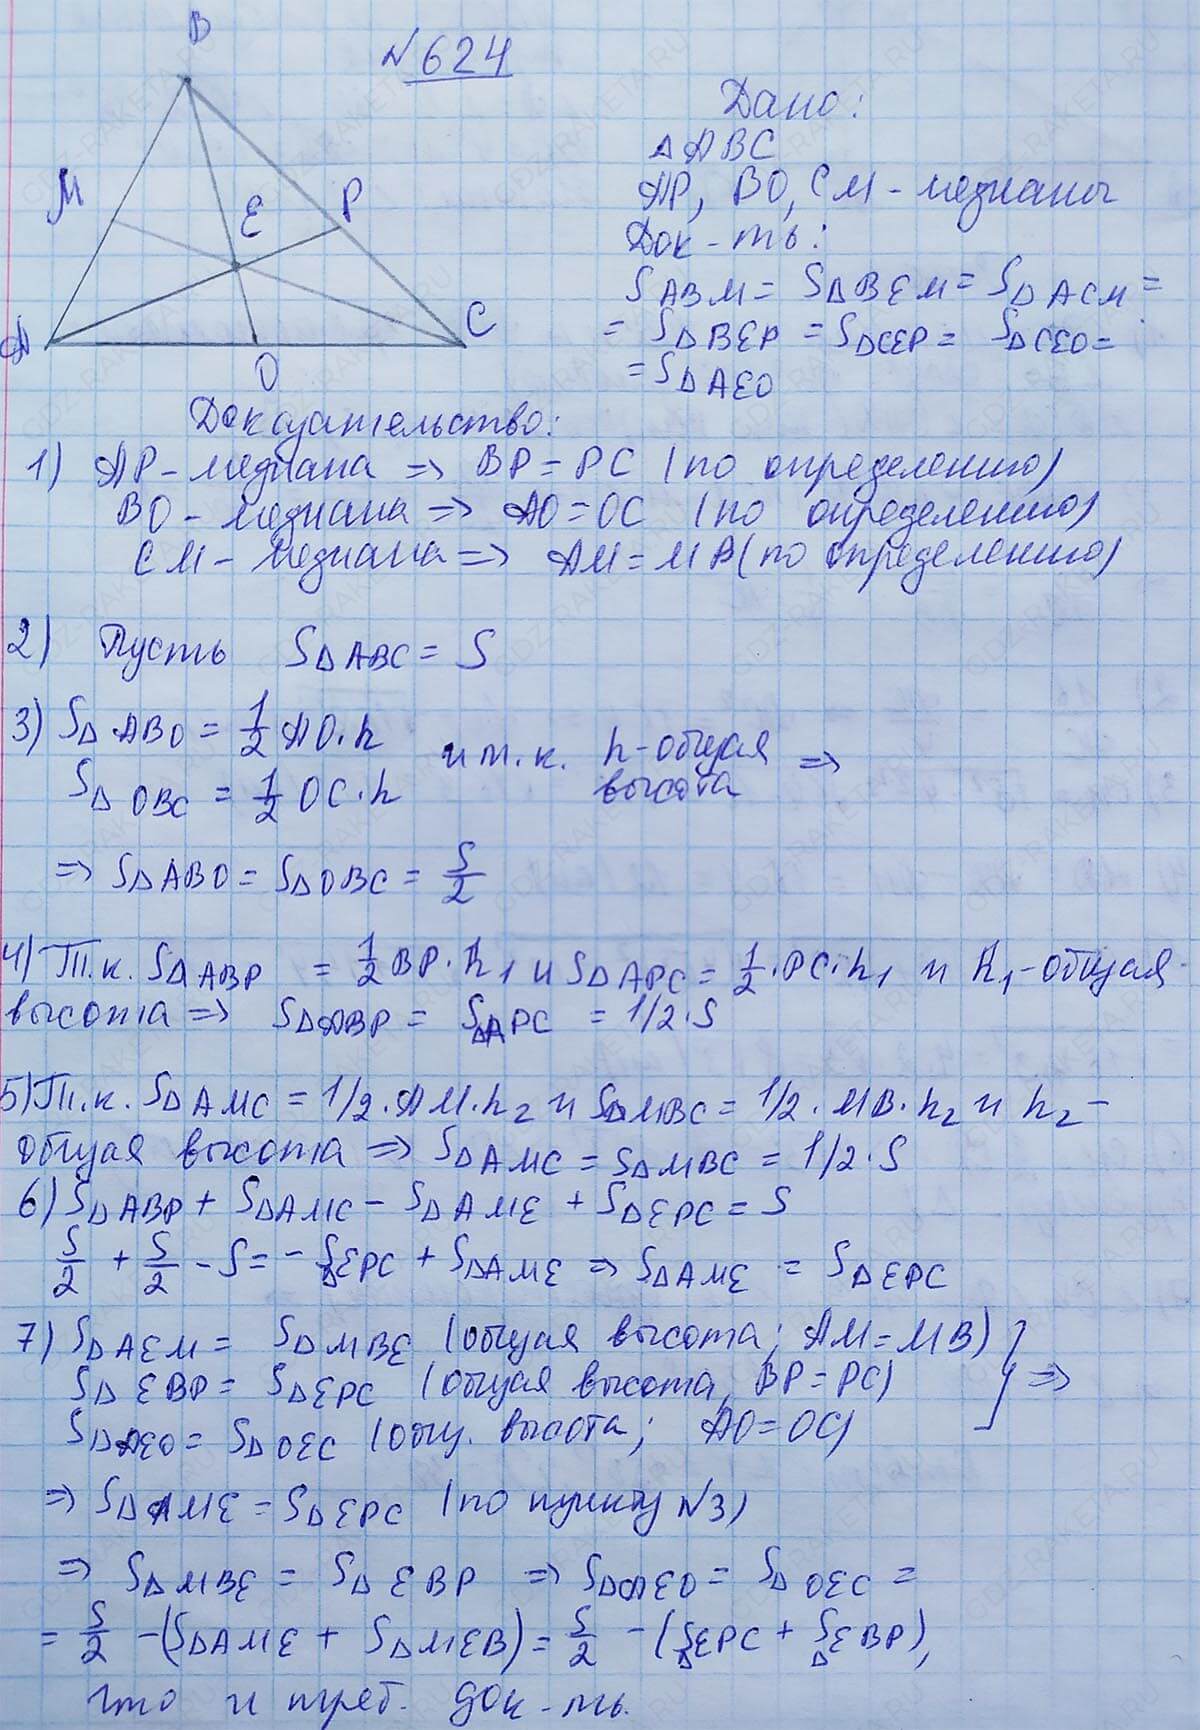 №624
B
M
E
P
A
O
C
Дано:
△ABC
AP, BO, CM - медианы
Док-ть:
S ABM = S△BEM = S△ACM =
= S△BEP = S△CEP = S△CEO =
= S△AEO
Доказательство:
1) AP - медиана => BP = PC (по определению)
BO - медиана => AO = OC (по определению)
CM - медиана => AM = MB (по определению)
2) Пусть S△ABC = S
3) S△ABO = 1/2 AO·h
S△OBC = 1/2 OC·h
и т.к. h - общая
высота =>
=> S△ABO = S△OBC = S/2
4) Т.к. S△ABP = 1/2 BP·h₁ и S△APC = 1/2·PC·h₁ и h₁ - общая
высота => S△ABP = S△APC = 1/2·S
5) Т.к. S△AMC = 1/2·AM·h₂ и S△MBC = 1/2·MB·h₂ и h₂ -
общая высота => S△AMC = S△MBC = 1/2·S
6) S△ABP + S△AMC - S△AME + S△EPC = S
S/2 + S/2 - S = - S△EPC + S△AME => S△AME = S△EPC
7) S△AEM = S△MBE (общая высота; AM = MB)
S△EBP = S△EPC (общая высота, BP = PC)
S△AEO = S△OEC (общ. высота; AO = OC)
} =>
=> S△AME = S△EPC (по пункту №3)
=> S△MBE = S△EBP => S△AEO = S△OEC =
= S/2 - (S△AME + S△MEB) = S/2 - (S△EPC + S△EBP),
что и треб. док-ть.